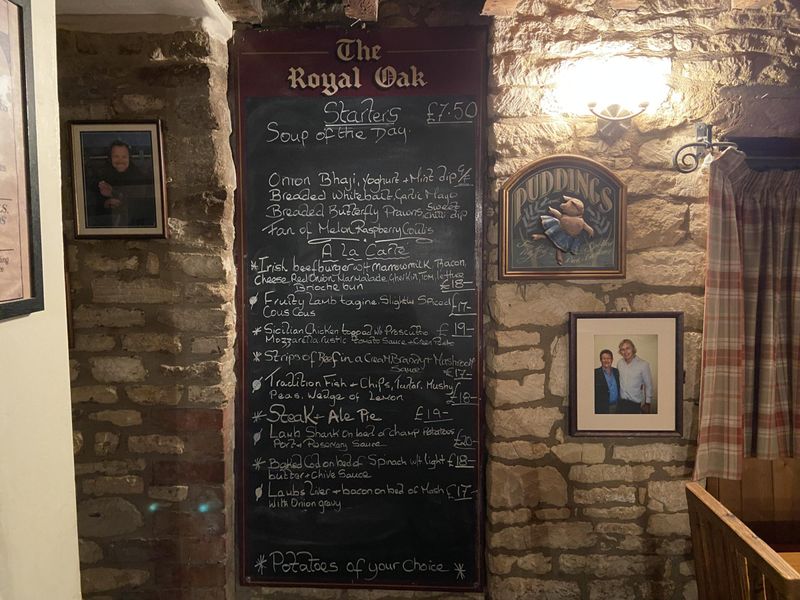 The
Royal Oak
Starters £7.50
Soup of the Day.
Onion Bhaji, Yoghurt + Mint dip
Breaded Whitebait, Garlic Mayo
Breaded Butterfly Prawns Sweet
chilli dip
Fan of Melon Raspberry Coulis
A La Carte
* Irish beef burger wt marrowmilk
Cheese, Red Onion Marmalade, Gherkin, Tom, lettuce
Brioche bun £18-
Fruity Lamb tagine. Slightly Spiced £17-
Cous Cous
* Sicilian Chicken topped wt Proscutto £19-
Mozzarella rustic tomato Sauce + Green Pesto
* Strips of Beef in a Cream, Brandy + Mushroom
Sauce £17-
Tradition Fish + Chips, Tartar, Mushy
Peas. Wedge of Lemon £18-
* Steak + Ale Pie £19-
Lamb Shank on bed of champ Potatoes £20-
Port + Rosemary Sauce
* Baked Cod on bed of Spinach wt light £18-
butter + Chive Sauce
Lambs liver + bacon on bed of Mash £17-
With Onion gravy
* Potatoes of your Choice *
PUDDINGS